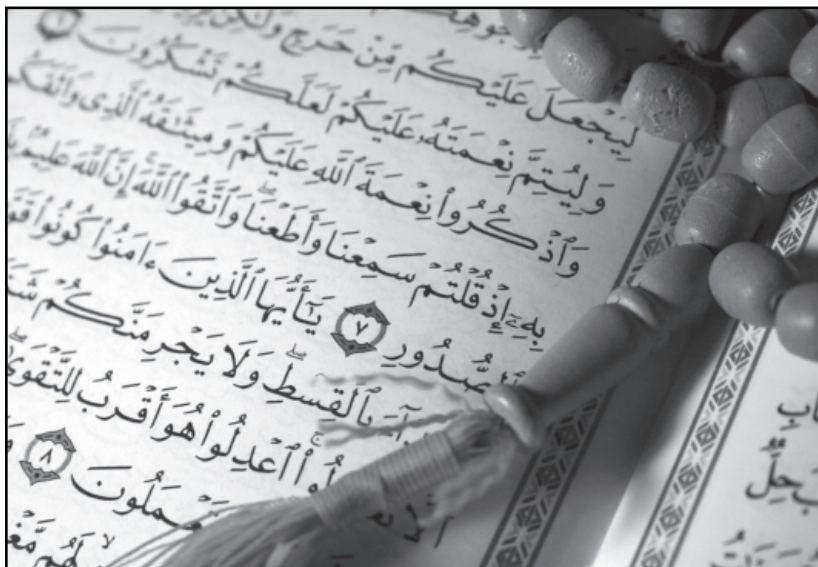 لِيَجْعَلَ عَلَيْكُم مِّنْ حَرَجٍ وَلَٰكِن
وَلِيُتِمَّ نِعْمَتَهُۥ عَلَيْكُمْ لَعَلَّكُمْ تَشْكُرُونَ ٦
وَٱذْكُرُوا۟ نِعْمَةَ ٱللَّهِ عَلَيْكُمْ وَمِيثَٰقَهُ ٱلَّذِى وَاثَقَكُم
بِهِۦٓ إِذْ قُلْتُمْ سَمِعْنَا وَأَطَعْنَا ۖ وَٱتَّقُوا۟ ٱللَّهَ ۚ إِنَّ ٱللَّهَ عَلِيمٌۢ
ٱلصُّدُورِ ٧ يَٰٓأَيُّهَا ٱلَّذِينَ ءَامَنُوا۟ كُونُوا۟
بِٱلْقِسْطِ ۖ وَلَا يَجْرِمَنَّكُمْ
ٱعْدِلُوا۟ هُوَ أَقْرَبُ لِلتَّقْوَىٰ
تَعْمَلُونَ ٨
لَهُم
حِلٌّ